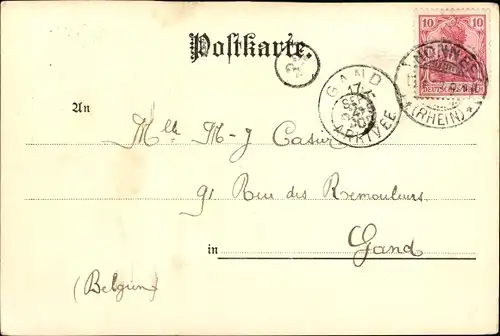 Postkarte.
10 10
DEUTSCHES REICH
NONNE
(RHEIN)
GAND
17
SEPT
ARRIVEE
An
Mlle M-J Casier
91 Rue des Remouleurs
in Gand
(Belgien)